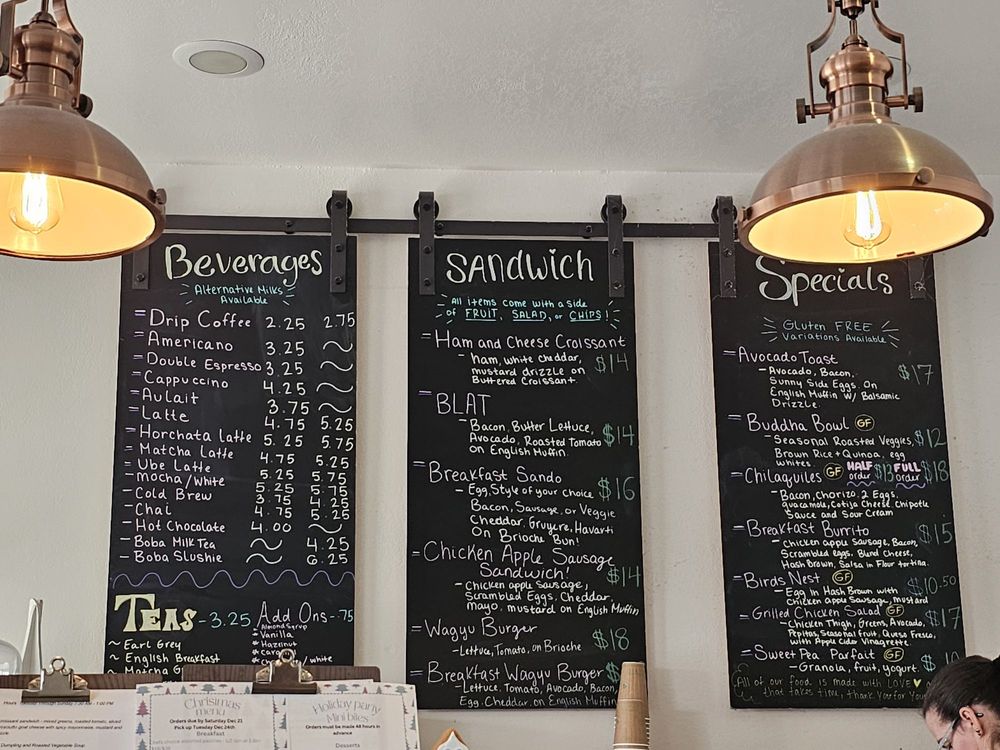 Beverages
Alternative Milks
Available
Drip Coffee 2.25 2.75
Americano 3.25 ~
Double Espresso 3.25 ~
Cappuccino 4.25 ~
Au lait 3.75 ~
Latte 4.75 5.25
Horchata latte 5.25 5.75
Matcha Latte 4.75 5.25
Ube Latte 5.25 5.75
mocha/white 5.25 5.75
Cold Brew 3.75 4.25
Chai 4.75 5.25
Hot Chocolate 4.00 ~
Boba Milk Tea ~ 4.25
Boba Slushie ~ 6.25
TEAS -3.25
~ Earl Grey
~ English Breakfast
~ Matcha
Add Ons -.75
Almond Syrup
- Vanilla
SANDWICH
All items come with a side
of FRUIT, SALAD, or CHIPS!
Ham and Cheese Croissant
- ham, white cheddar, $14
mustard drizzle on
Buttered Croissant.
BLAT
- Bacon, Butter Lettuce,
Avocado, Roasted Tomato $14
on English Muffin.
Breakfast Sando
- Egg, Style of your choice $16
Bacon, Sausage, or Veggie
Cheddar, Gruyere, Havarti
On Brioche Bun!
Chicken Apple Sausage
Sandwich! $14
- Chicken apple Sausage,
Scrambled Eggs, Cheddar,
mayo, mustard on English Muffin
Wagyu Burger $18
- Lettuce, Tomato, on Brioche
Breakfast Wagyu Burger $
- Lettuce, Tomato, Avocado, Bacon,
Egg, Cheddar, on English Muffin
Specials
Gluten FREE
Variations Available
Avocado Toast
- Avocado, Bacon, $17
Sunny Side Eggs. On
English Muffin w/ Balsamic
Drizzle.
Buddha Bowl GF
- Seasonal Roasted Veggies, $12
Brown Rice + Quinoa, egg
whites
Chilaquiles GF HALF order $13 FULL order $18
- Bacon, Chorizo, 2 Eggs,
guacamole, Cotija Cheese, Chipotle
Sauce and Sour Cream
Breakfast Burrito $15
- Chicken apple Sausage, Bacon,
Scrambled eggs, Blend Cheese,
Hash Brown, Salsa in Flour tortilla.
Birds Nest GF $10.50
- Egg in Hash Brown with
Chicken apple Sausage, mustard
Grilled Chicken Salad GF $17
- Chicken Thigh, Greens, Avocado,
Pepitas, Seasonal fruit, Queso Fresco,
with Apple Cider Vinagrette
Sweet Pea Parfait GF
- Granola, fruit, yogurt.
All of our food is made with LOVE ♥
that takes time, thank you for
Christmas
menu
Orders due by Saturday Dec 21
Pick up Tuesday Dec 24th
Breakfast
Holiday party
Mini bites
Orders must be made 48 hours in
advance
Desserts